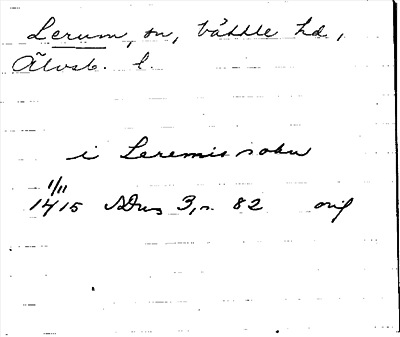 Lerum, sn, Vättle hd.,
Älvsb. l.
i Leremis sokn
1/11
1415 SDns 3, s. 82 orig